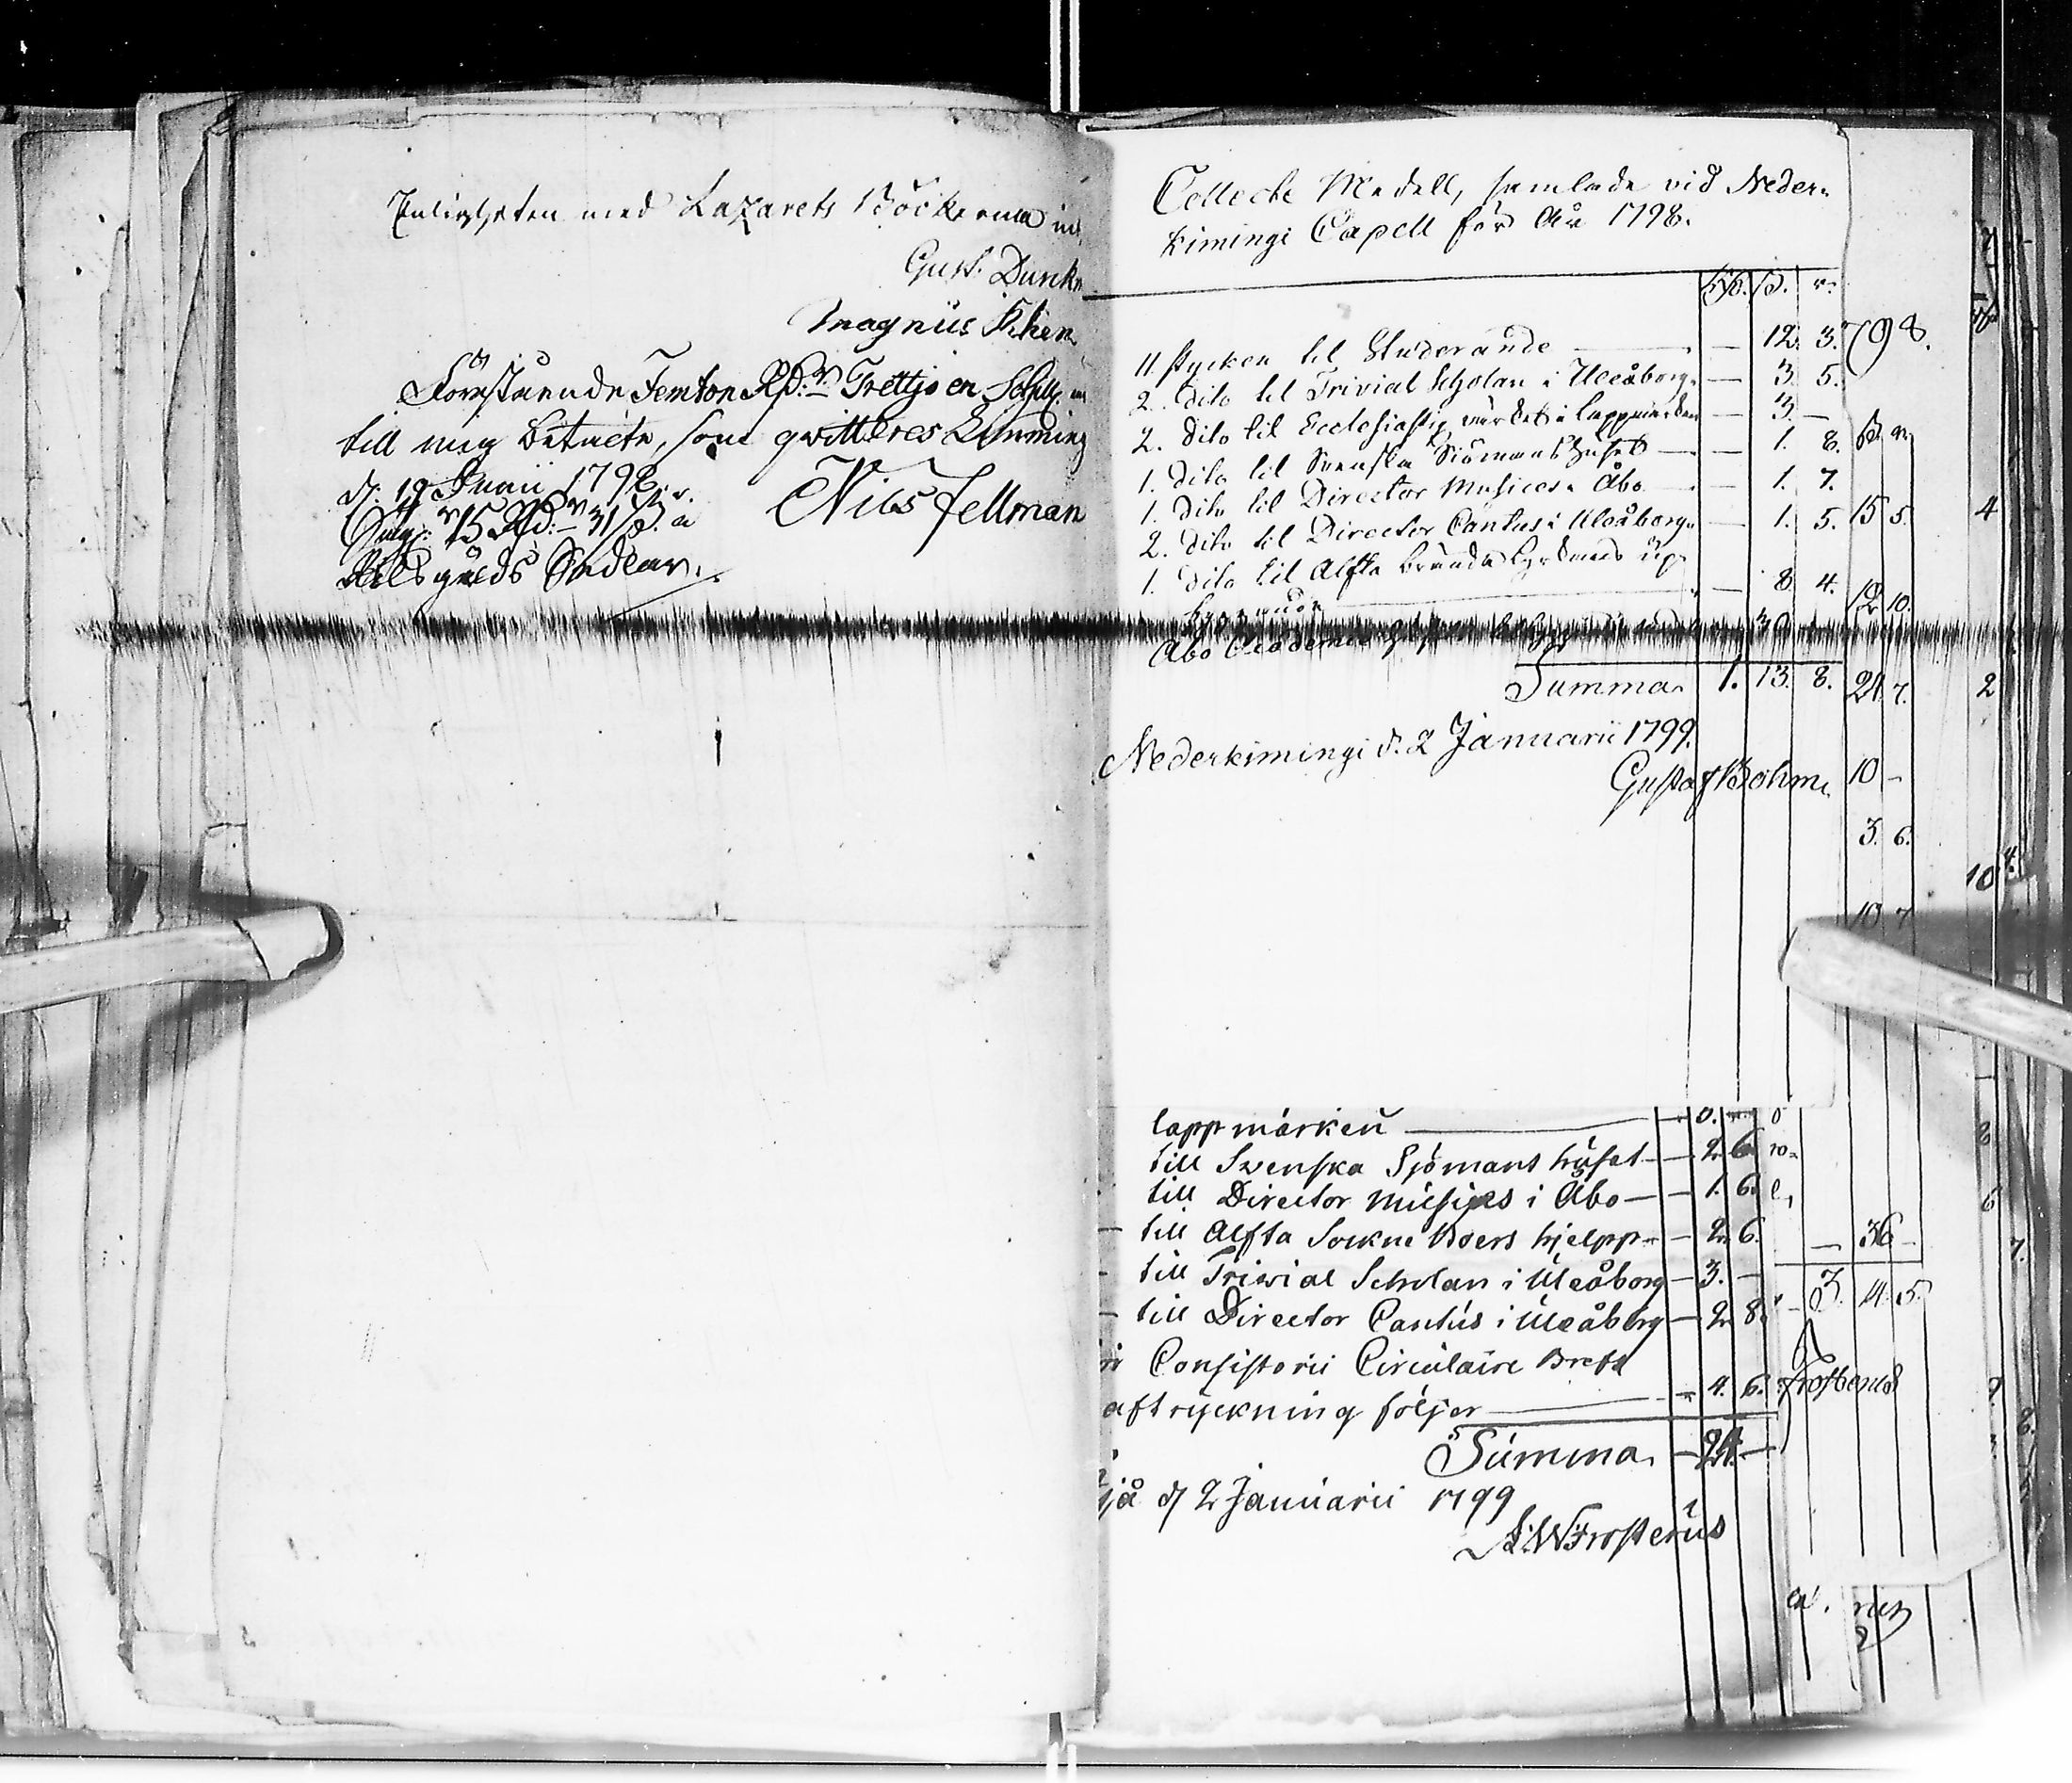 Enligheten med Lazarets Böckerna
Gust. Dunk
Magnus
Förestående Femton Rd:r Trettjo en Schill.
till mig betalte, som qvitteres Limming
d. 19 Junii 1798.
15 Rd:r 31 s. a
Riksgälds Sedlar.
Nils Fellman
Collecte Medell, samlade vid Neder-
kimingi Capell för År 1798.
s. r.
11. stycken til Studerande — 12. 3.
2. dito til Trivial Scholan i Uleåborg — 3. 5.
2. dito til Ecclesiastiq värket i Lappmarken — 3. —
1. dito til Svenska Siömans huset — 1. 8.
1. dito til Director Musices i Åbo — 1. 7.
2. dito til Director Cantus i Uleåborg — 1. 5.
1. dito til Alfta brända kyrkans up-
byggande — 8. 4.
Åbo
Summa 1. 13. 8.
Nederkimingi d. 2 Januarii 1799.
Gustaf Bohm
798.
15 5.
10.
21. 7.
10 -
3. 6.
10 7
4
2
10
lappmarken
till Svenska Sjömans huset — 2. 6.
till Director Musices i Åbo — 1. 6.
till Alfta Sockne Boers hjelpp — 2. 6.
till Trivial Scholan i Uleåborg — 3. —
till Director Cantus i Uleåborg — 2. 8.
Consistorii Circulaire Bref
aftryckning följer — 4. 6.
Summa — 24. —
d 2 Januarii 1799
Frosterus
— 36 -
3. 14. 5.